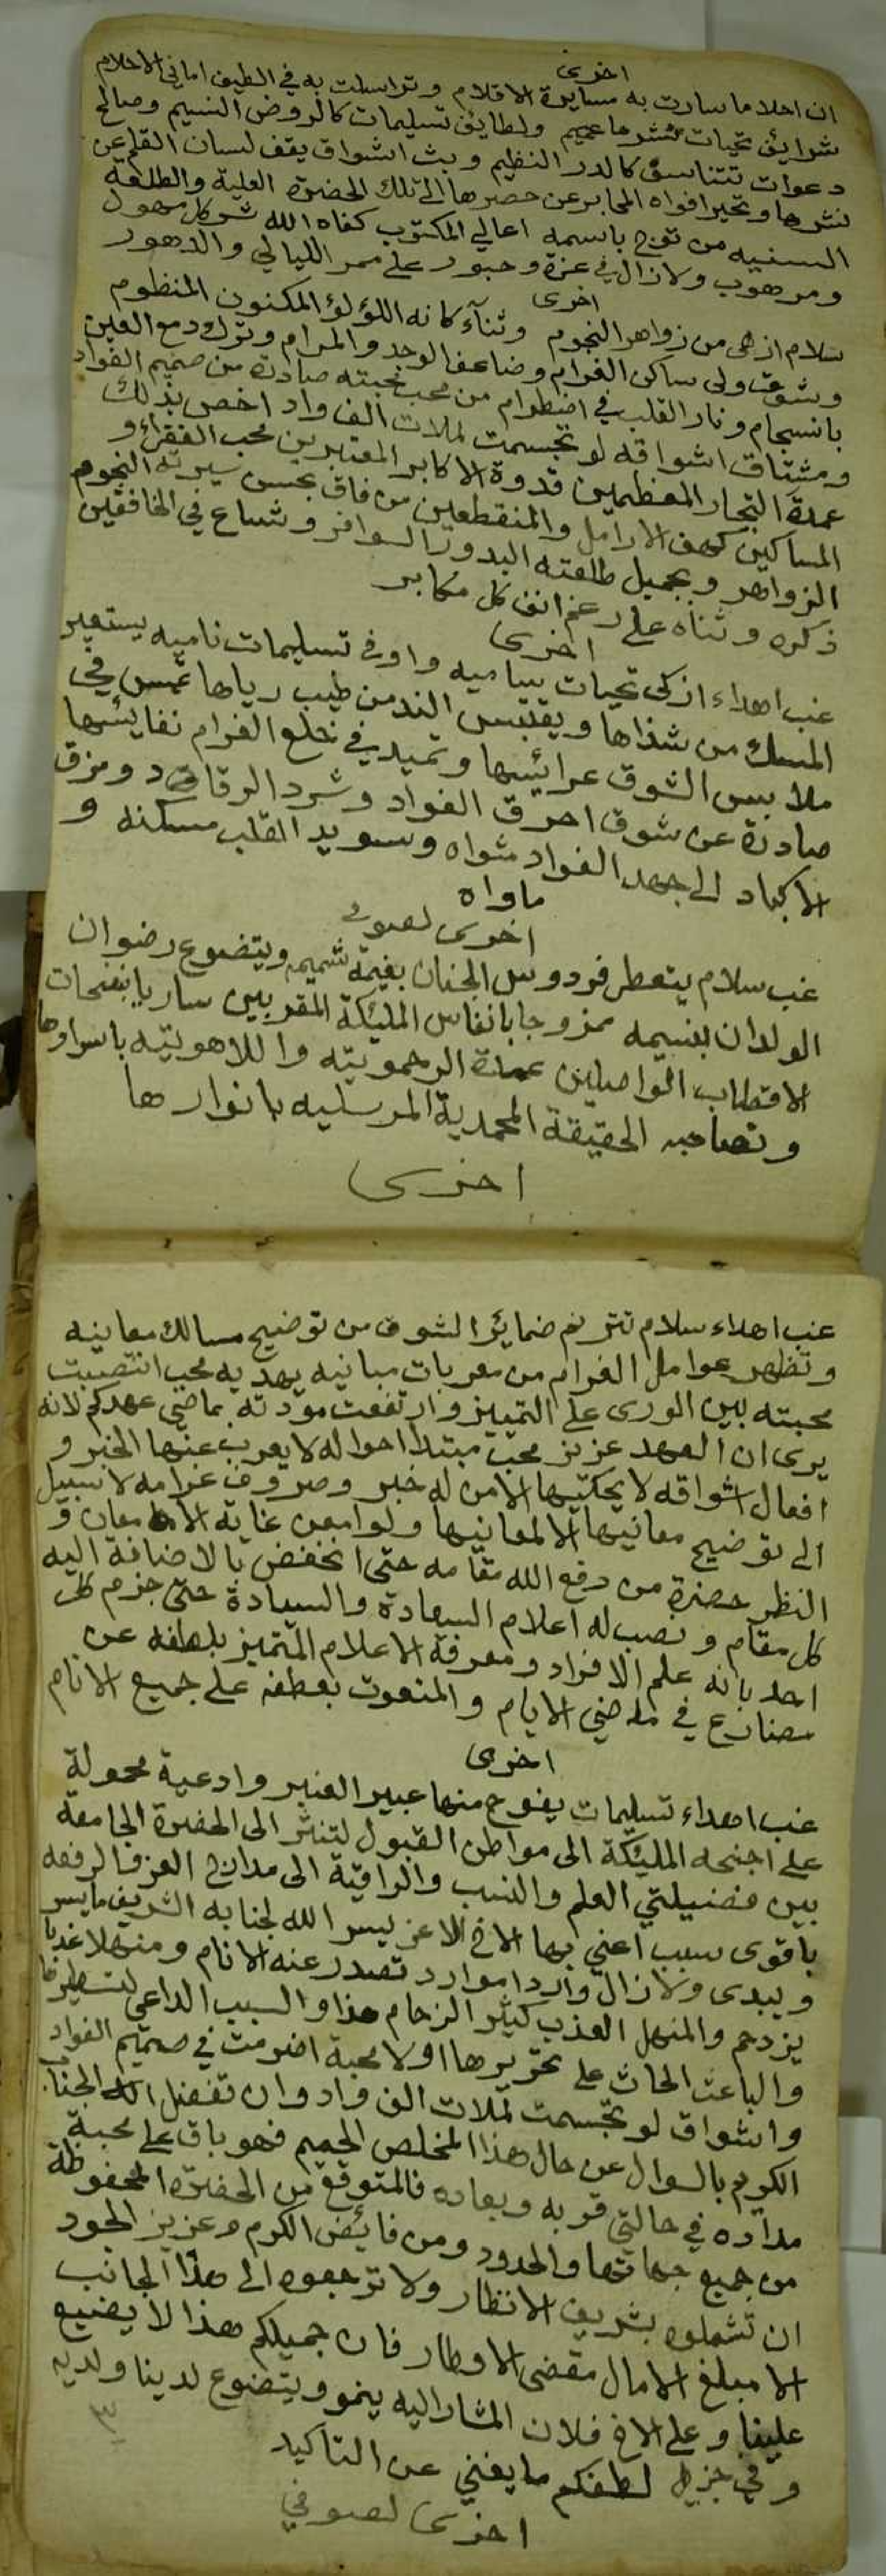 اخرى
ان احلا ما سارت به مسايرة الاقلام وتراسلت به في الطيف اماني الاحلام
شرايف تحيات نشرها عميم ولطايف تسليمات كالروض النسيم وصالح
دعوات تتناسق كالدر النظيم وبث اشواق يقف لسان القلم عن
نشرها وتحير افواه المحابر عن حصرها الى تلك الحضرة العلية والطلعة
السنيه من توج باسمه اعالي المكتوب كفاه الله شر كل مهول
ومرهوب ولا زال في عزة وحبور على ممر الليالي والدهور
اخرى
سلام ازهى من زواهر النجوم وثنآء كانه اللؤلؤ المكنون المنظوم
وشوق ولى ساكن الغرام وضاعف الوجد والمرام وترك دمع العين
بانسجام ونار القلب في اضطرام من محب محبته صادرة من صميم الفواد
ومشتاق اشواقه لو تجسمت لملات الف واد اخص بذلك
عمدة التجار المعظمين قدوة الاكابر المعتبرين محب الفقراء و
المساكين كهف الارامل والمنقطعين من فاق بحسن سيرته النجوم
الزواهر وبجميل طلعته البدور السوافر وشاع في الخافقين
ذكره وثناه على رغم انف كل مكابر
اخرى
غب اهداء ازكى تحيات بيا ميه واوفى تسليمات ناميه يستعير
المسك من شذاها ويقتبس الند من طيب رياها تميس في
ملابس الشوق عرائسها وتميد في خلع الغرام نفايسها
صادرة عن شوق احرق الفواد وشرد الرقاد ومزق
الاكباد الى جهد الفواد مثواه وسويد القلب مسكنه و
ماواه
اخرى لصوفى
غب سلام يتعطر فردوس الجنان بغيمة شميمه ويتضوع رضوان
الولدان بنسيمه ممزوجا بانفاس المليكة المقربين ساريا بنفحات
الاقطاب الواصلين عمدة الرحموتيه واللاهوتيه باسرارها
وتصاحبه الحقيقة المحمدية المرسليه بانوارها
اخرى
غب اهداء سلام تترنم ضمائر الشوق من توضيح مسالك معانيه
وتظهر عوامل الغرام من معربات مبانيه يهديه محب انتصبت
محبته بين الورى على التمييز وارتفعت مودته بماضي عهدكم لانه
يرى ان العهد عزيز محب مبتدا احواله لا يعرب عنها الخبر و
افعال اشواقه لا يحكيها الا من له خبر وصروف غرامه لا سبيل
الى توضيح معانيها الا لمعانيها ولو امعن غاية الامعان و
النظر حضرة من رفع الله مقامه حتى انخفض بالاضافة اليه
كل مقام ونصب له اعلام السعادة والسيادة حتى جزم كل
احد بانه علم الافراد ومعرفة الاعلام المتميز بلطفه عن
مضارع في ماضي الايام والمنعوت بعطفه على جميع الانام
اخرى
غب اهداء تسليمات يفوح منها عبير العنبر وادعية محمولة
على اجنحه المليكة الى مواطن القبول لتنشر الى الحضرة الجامعة
بين فضيلتي العلم والنسب والراقية الى مدارج العز والرفعه
باقوى سبب اعني بها الاخ الاعز يسر الله لجنابه الشريف ما يسر
ويبدى ولا زال واردا موارد تصدر عنه الانام ومنهلا عذبا
يزدحم والمنهل العذب كثير الزحام هذا والسبب الداعي لتسطيرها
والباعث الحاث على تحريرها اولا محبة اضرمت في صميم الفواد
واشواق لو تجسمت لملات الف واد وان تفضل الجناب
الكريم بالسوال عن حال هذا المخلص الحميم فهو باق على محبة
مداده في حالتي قربه وبعاده فالمتوقع من الحضرة المحفوظة
من جميع جهاتها والحدود ومن فائض الكرم وعزيز الجود
ان تشملوه بشريف الانظار ولا ترجعوه الى هذا الجانب
الا مبلغ الامال مقضى الاوطار فان جميلكم هذا لا يضيع
علينا وعلى الاخ فلان المشار اليه ينمو ويتضوع لدينا ولديه
وفي جزيل لطفكم ما يغني عن التاكيد
اخرى لصوفي